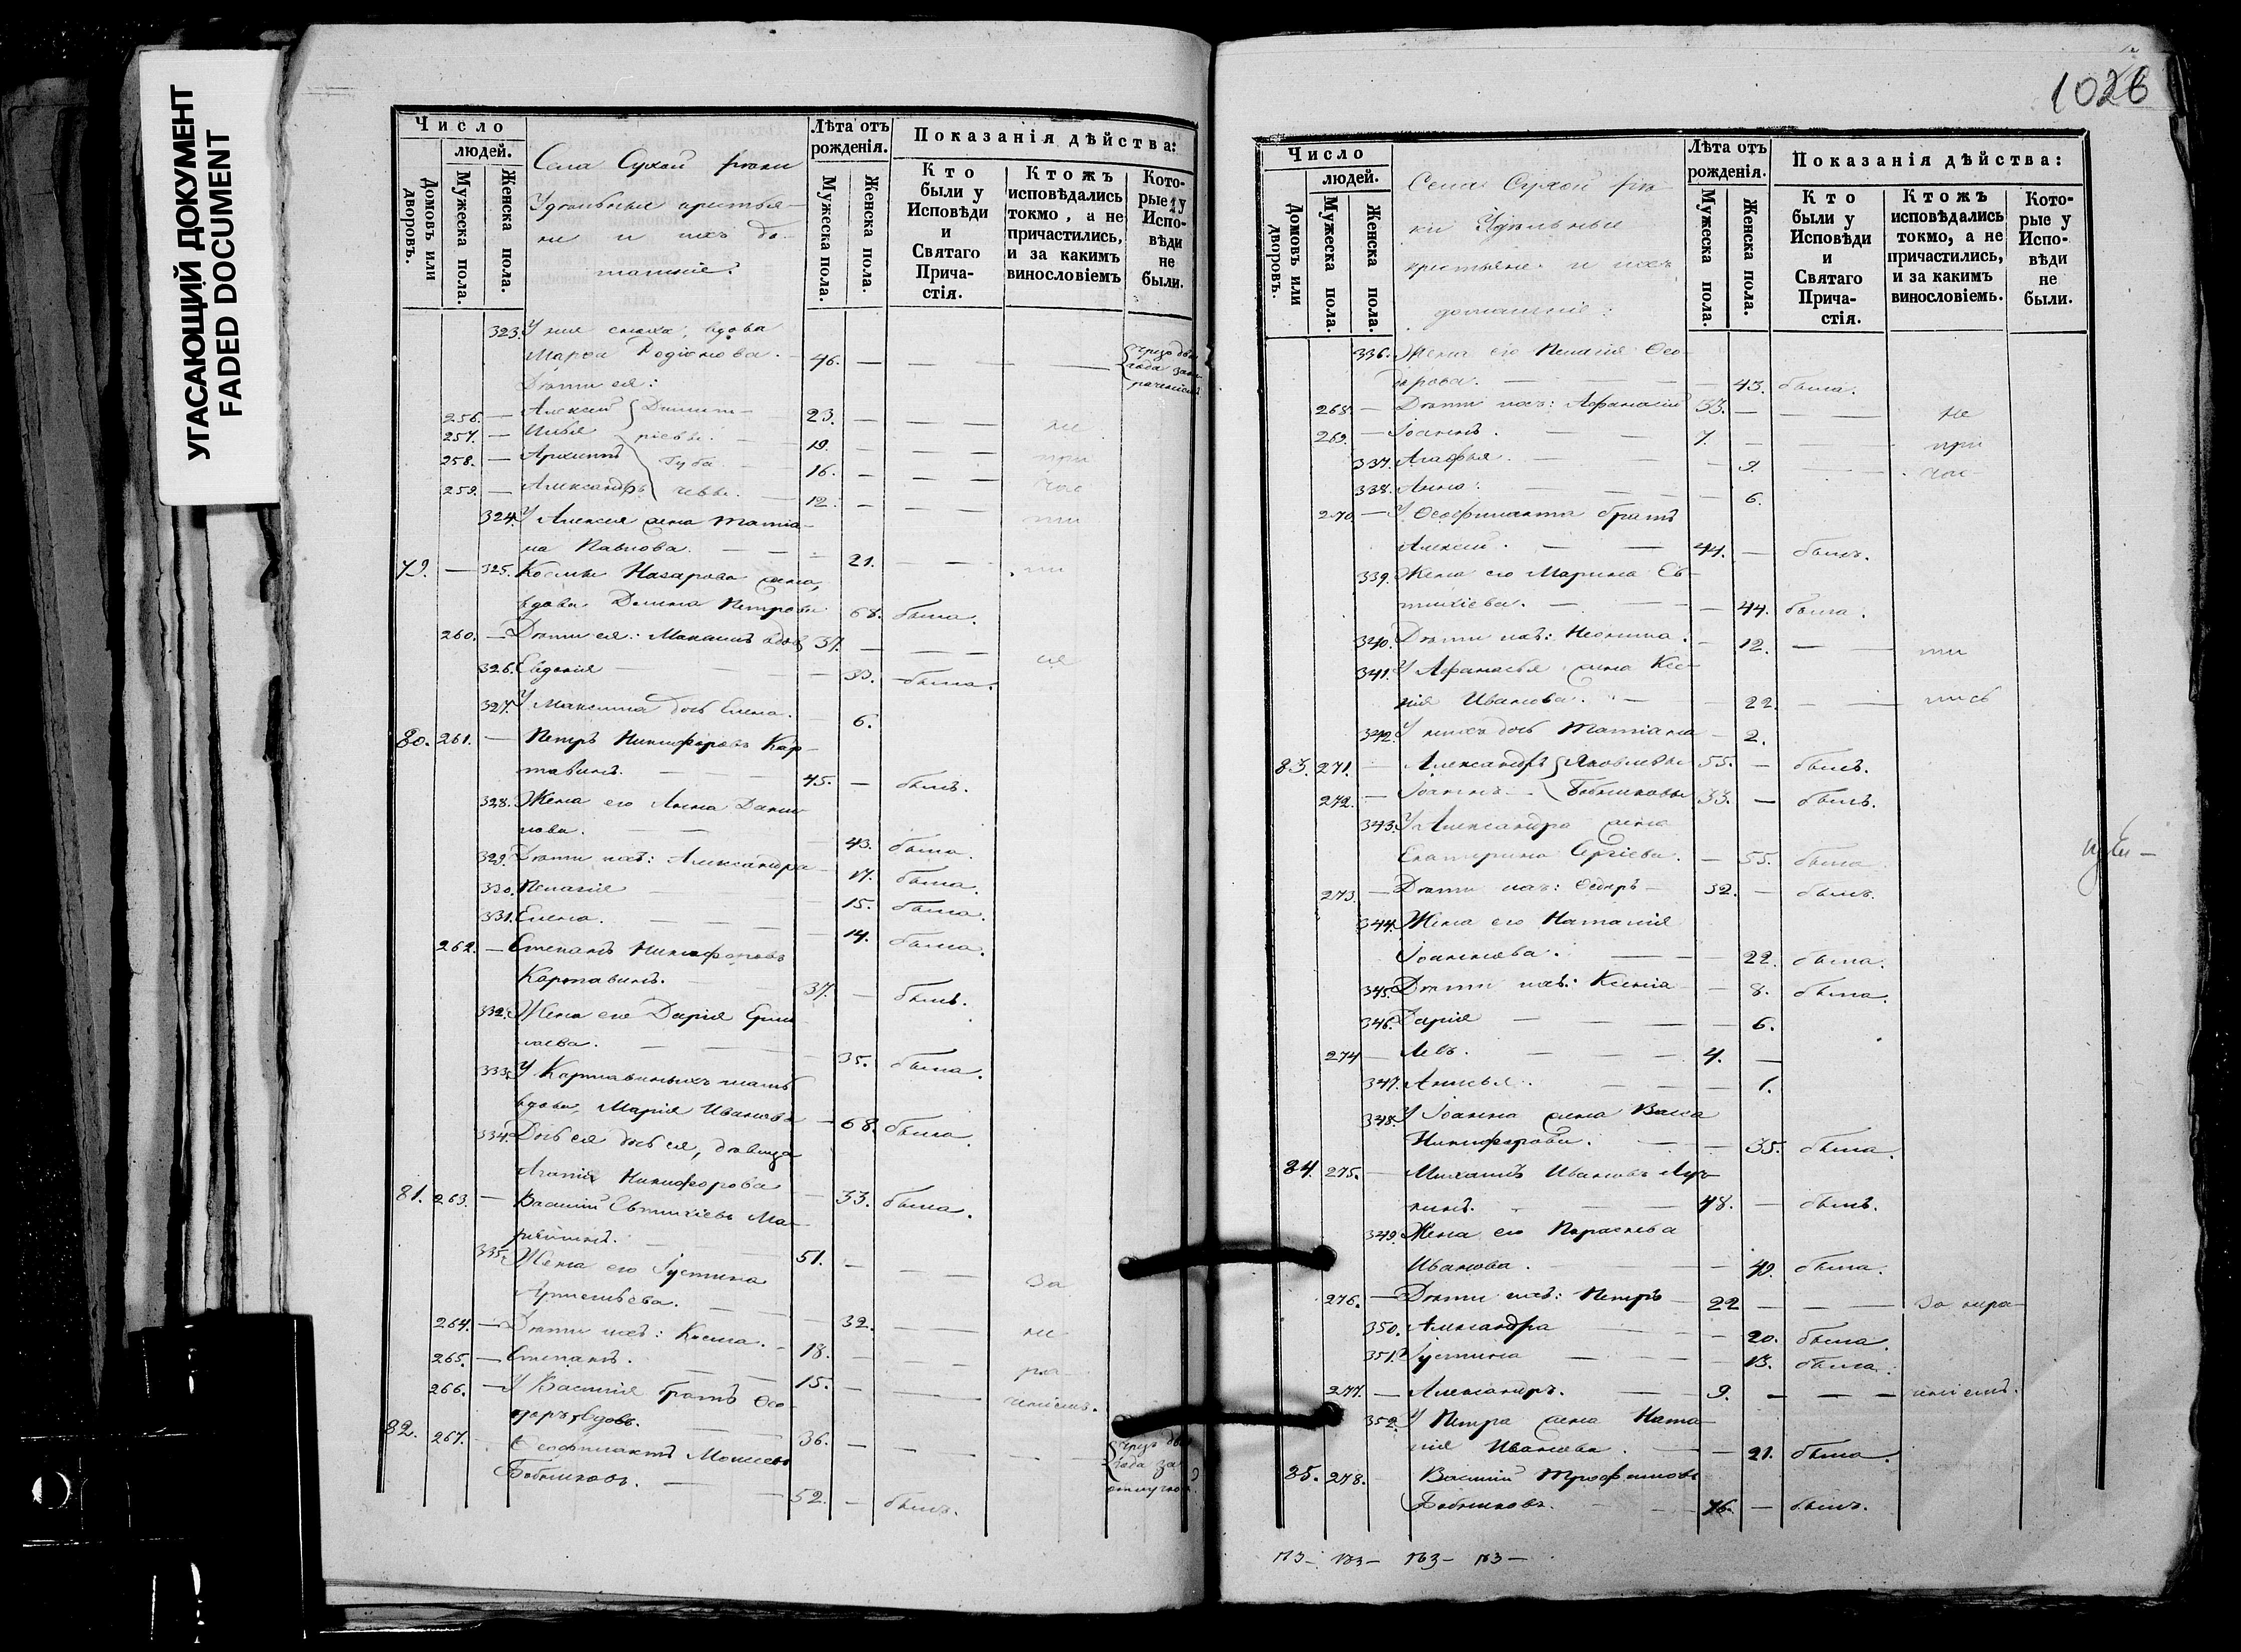 УГАСАЮЩИЙ ДОКУМЕНТ
FADED DOCUMENT
Число
людей.
Домовъ или дворовъ.
Мужеска пола.
Женска пола.
Села Сухой рѣки
Удѣльные крестья-
не и ихъ до-
машніе.
Лѣта отъ рожденія.
Мужеска пола.
Женска пола.
Показанія дѣйства:
Кто были у Исповѣди и Святаго Прича-стія.
Ктожъ исповѣдались токмо, а не причастились, и за какимъ винословіемъ
Кото-рые у Испо-вѣди не были.
323. У нея сноха, вдова
Марѳа Родіонова. — 46. — — —
Дѣти ея:
256. — Алексѣй Димит- 23. — — — не
257. — Илья ріевы. — 19. — — — при
258. — Архиппъ Губа- 16. — — — час
259. — Александръ чевы. — 12. — — — ти
324. У Алексѣя жена Татіа-
на Павлова. — — — 21. — — ли
79. — 325. Космы Назарова жена,
вдова Домна Петрова 68. была.
260. — Дѣти ея: Максимъ вдовъ 37. — — — ся
326. Евдокія — — — 33. была.
327. У Максима дочь Елена. — 6.
80. 261. — Петръ Никифоровъ Кар-
тавинъ. — — 45. — былъ.
328. Жена его Анна Дани-
лова. — — — 43. была.
329. Дѣти ихъ: Александра — 17. была.
330. Пелагія — — — 15. была.
331. Елена. — — — 14. была.
262. — Степанъ Никифоровъ
Картавинъ. — — 37. — былъ.
332. Жена его Дарія Ерми-
лаева. — — — 35. была.
333. У Картавиныхъ мать
вдова, Марія Иванова — 68. была.
334. Дочь ея дочь ея, дѣвица
Агапія Никифорова — 33. была.
81. 263. — Василій Евтихіевъ Ма-
51. — — — За
335. Жена его Іустина
Артемьева. — — — 32. — — не
264. — Дѣти ихъ: Косма. — 18. — — — ра-
265. — Степанъ. — — 15. — — — ченіемъ.
266. — У Василія братъ Ѳео-
доръ, вдовъ. — — 36. — — — —
82. 267. Ѳеофилактъ Моисеевъ
Бобылковъ. — — 52. — былъ.
1026
Число
людей.
Домовъ или дворовъ.
Мужеска пола.
Женска пола.
Села Сухой рѣ-
ки Удѣльные
крестьяне и ихъ
домашніе:
Лѣта отъ рожденія.
Мужеска пола.
Женска пола.
Показанія дѣйства:
Кто были у Исповѣди и Святаго Прича-стія.
Ктожъ исповѣдались токмо, а не причастились, и за какимъ винословіемъ.
Кото-рые у Испо-вѣди не были.
336. Жена его Пелагія Ѳео-
дорова. — — — 43. была.
268. — Дѣти ихъ: Афанасій 33. — — — не
269. — Іоаннъ. — — 7. — — — при
337. Агафья. — — — 9. — — час
338. Анна: — — — 6.
270. — У Ѳеофилакта братъ
Алексѣй. — — 44. — былъ.
339. Жена его Марина Ев-
тихіева. — — — 44. была.
340. Дѣти ихъ: Неонила. — 12. — — ти
341. У Афанасья жена Ксе-
нія Иванова. — — 22. — — лись
342. У нихъ дочь Татіана — 2.
83. 271. Александръ Яковлевы 55. — былъ.
272. — Іоаннъ — Бобылковы 33. — былъ.
343. У Александра жена
Екатерина Сергіева. — 55. была.
273. — Дѣти ихъ: Ѳедоръ — 32. — былъ.
344. Жена его Наталія
Іоаннова. — — 22. была.
345. Дѣти ихъ: Ксенія — 8. была.
346. Дарія — — — 6.
274 — Левъ. — — — 4. —
347. Анисья. — — — 1.
348. У Іоанна жена Васса
Никифорова. — — 35. была.
84. 275. — Михаилъ Ивановъ
48. — былъ.
349. Жена его Параскева
Иванова. — — 40. была.
276. — Дѣти ихъ: Петръ — 22 — — — За нера-
350. Александра — — — 20. была.
351. Іустина — — — 13. была.
277. — Александръ. — 9. — — — ченіемъ.
352. У Петра жена Ната-
лія Иванова. — — 21. была.
85. 278. — Василій Трофимовъ
Бобылковъ. — — 76. — былъ.